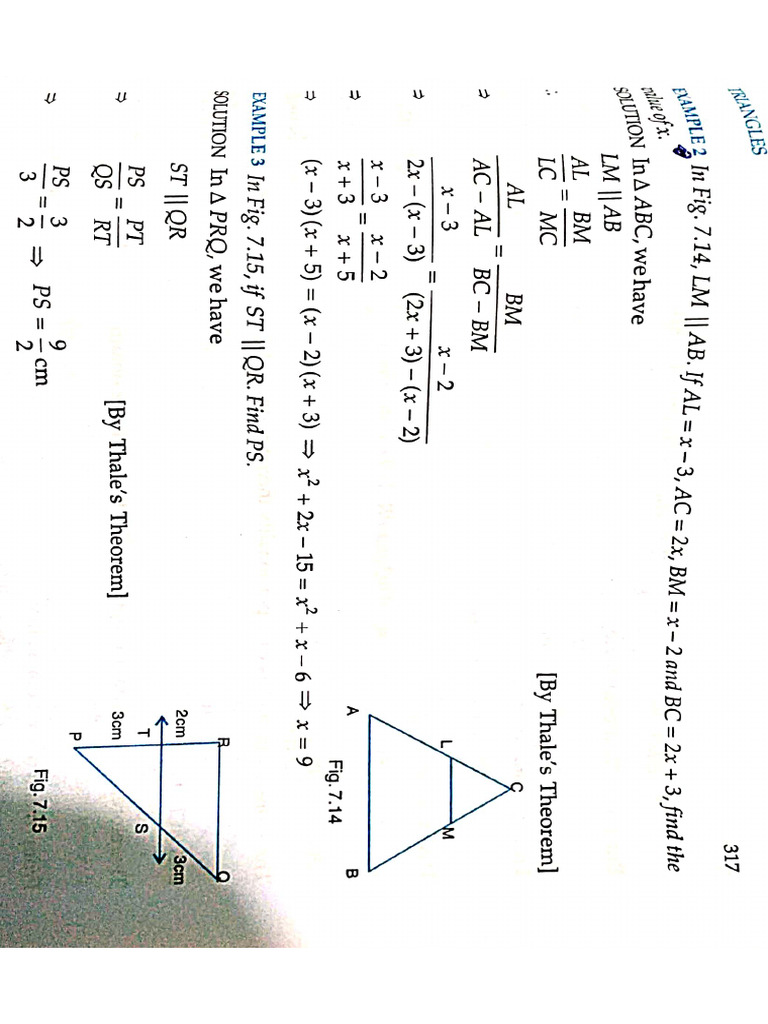 TRIANGLES 317
EXAMPLE 2 In Fig. 7.14, LM || AB. If AL = x – 3, AC = 2x, BM = x – 2 and BC = 2x + 3, find the
value of x.
SOLUTION In Δ ABC, we have
LM || AB
∴ AL/LC = BM/MC [By Thale's Theorem]
⇒ AL/(AC – AL) = BM/(BC – BM)
⇒ (x – 3)/(2x – (x – 3)) = (x – 2)/((2x + 3) – (x – 2))
⇒ (x – 3)/(x + 3) = (x – 2)/(x + 5)
⇒ (x – 3) (x + 5) = (x – 2) (x + 3) ⇒ x² + 2x – 15 = x² + x – 6 ⇒ x = 9
C
L M
A B
Fig. 7.14
EXAMPLE 3 In Fig. 7.15, if ST || QR. Find PS.
SOLUTION In Δ PRQ, we have
ST || QR
⇒ PS/QS = PT/RT [By Thale's Theorem]
⇒ PS/3 = 3/2 ⇒ PS = 9/2 cm
R Q
2cm 3cm
T S
3cm
P
Fig. 7.15